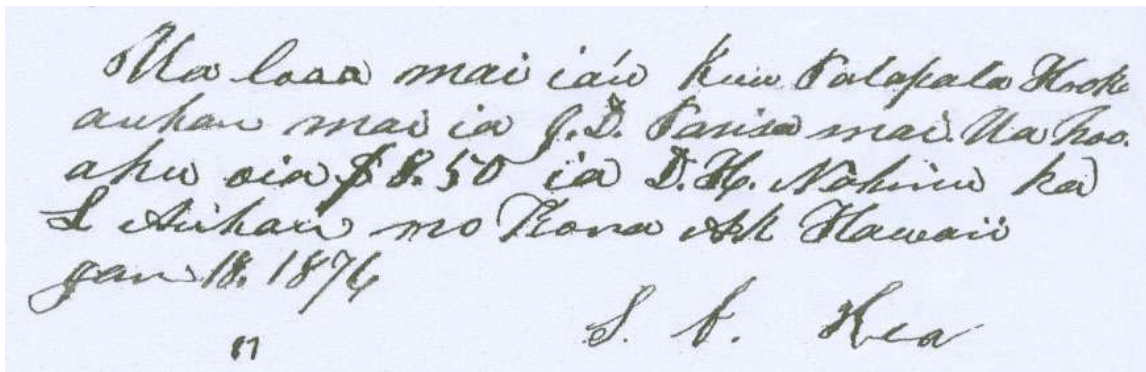 Ua loaa mai ia'u kuu Palapala Hook
auhau mai ia J. D. Parisa mai. Ua hoo.
aku oia $8.50 ia D. H. Nahinu ka
L Auhau mo Kona Ak Hawaii
Jan 18. 1876
S. Kea
17